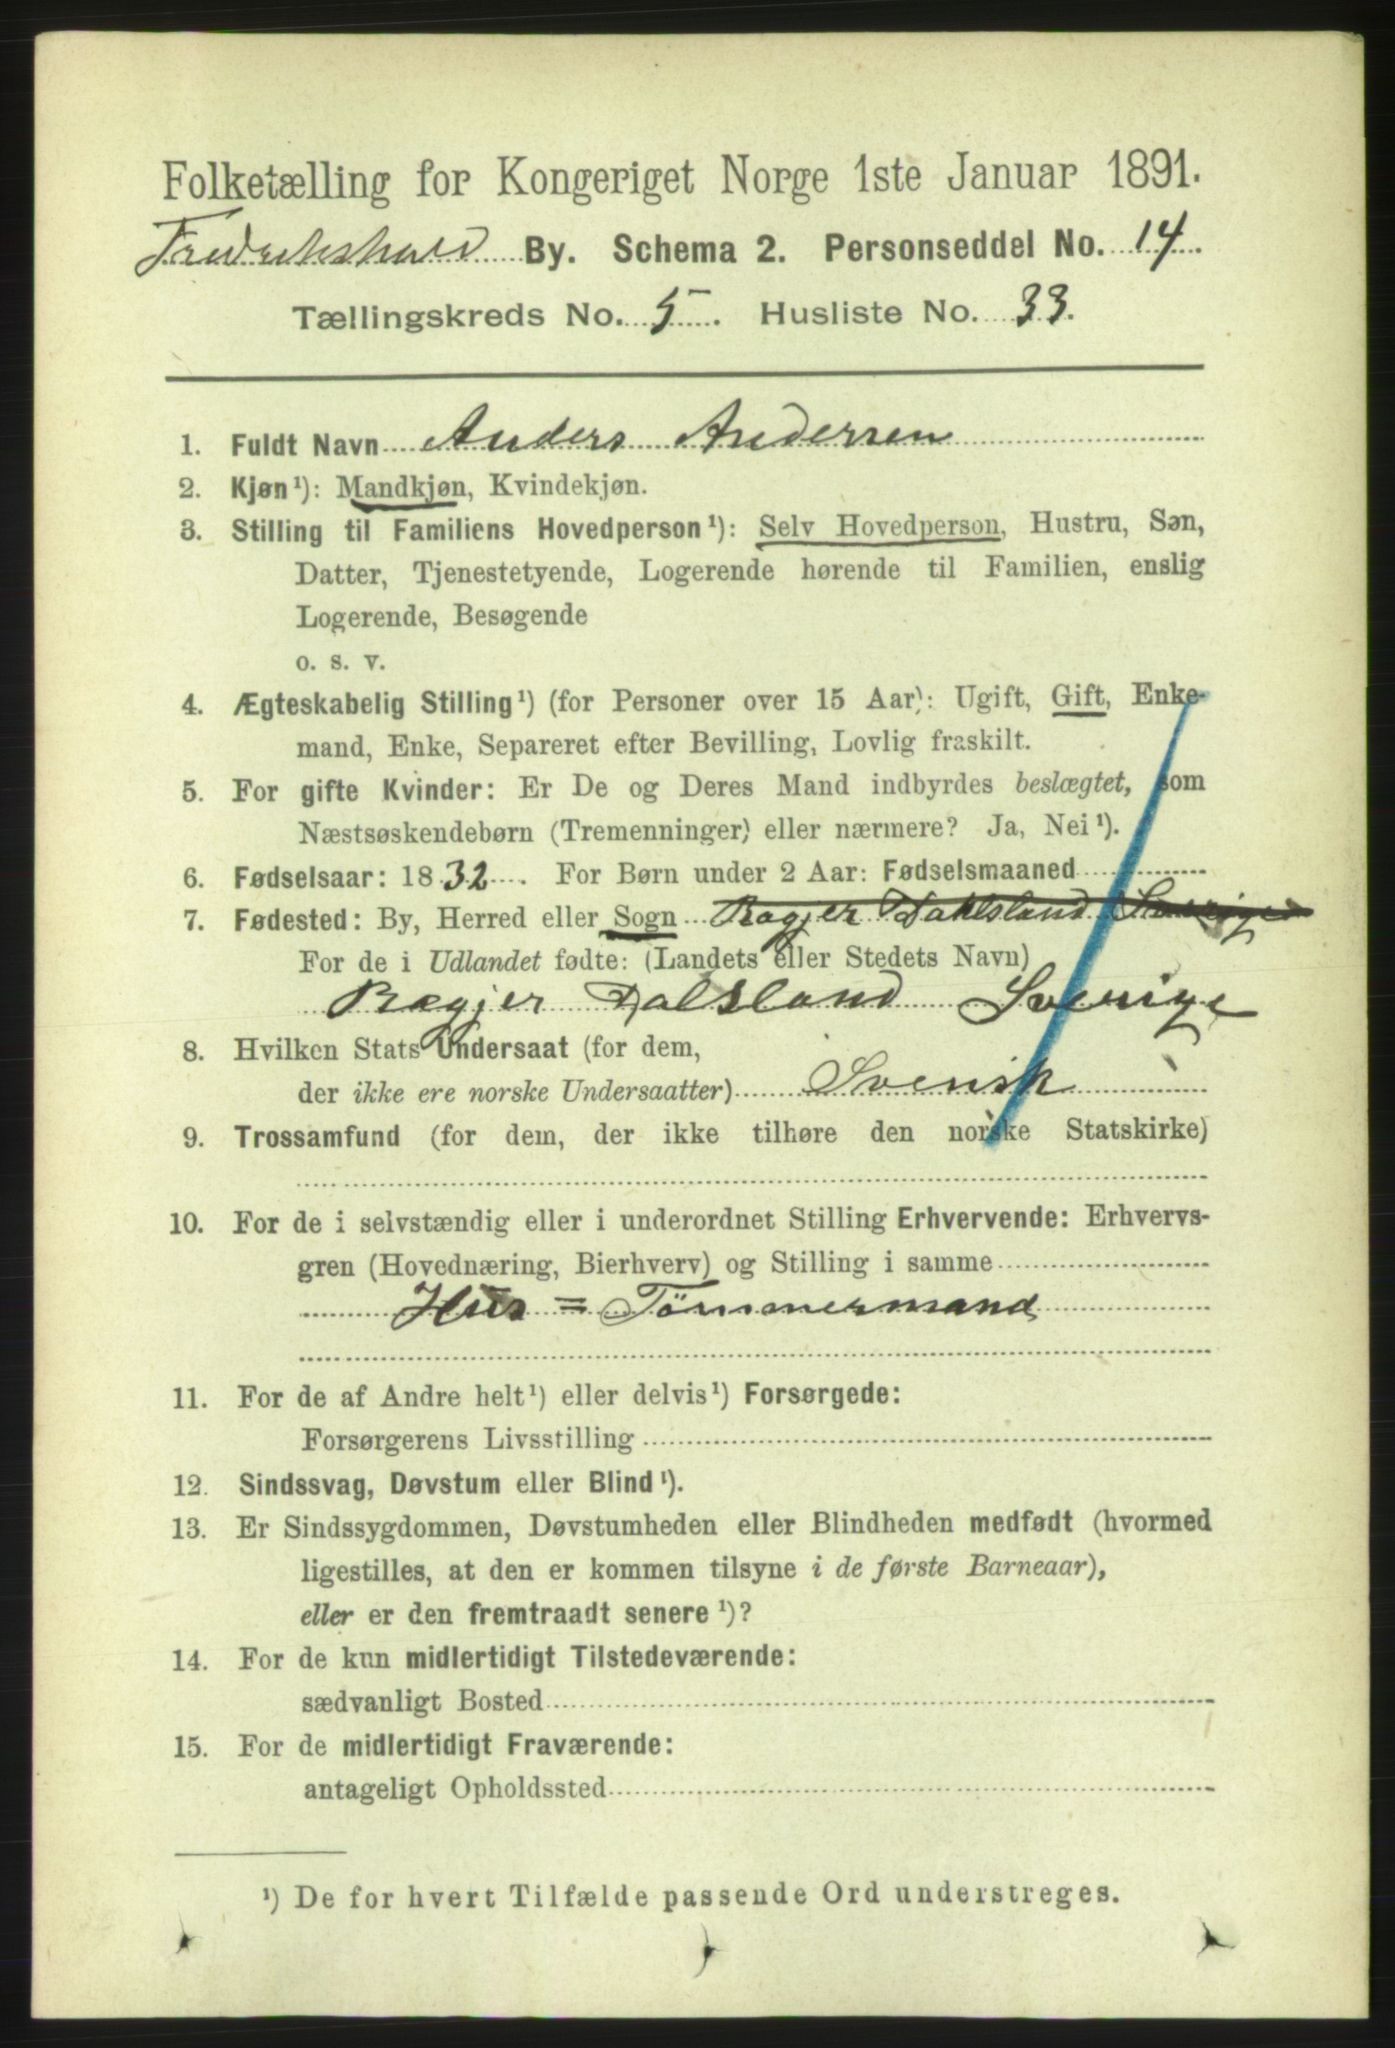 Folketælling for Kongeriget Norge 1ste Januar 1891.
Fredrikshald By. Schema 2. Personseddel No. 14.
Tællingskreds No. 5. Husliste No. 33.
1. Fuldt Navn Anders Andersen
2. Kjøn¹): Mandkjøn, Kvindekjøn.
3. Stilling til Familiens Hovedperson¹): Selv Hovedperson, Hustru, Søn,
Datter, Tjenestetyende, Logerende hørende til Familien, enslig
Logerende, Besøgende
o. s. v.
4. Ægteskabelig Stilling¹) (for Personer over 15 Aar): Ugift, Gift, Enke-
mand, Enke, Separeret efter Bevilling, Lovlig fraskilt.
5. For gifte Kvinder: Er De og Deres Mand indbyrdes beslægtet, som
Næstsøskendebørn (Tremenninger) eller nærmere? Ja, Nei¹).
6. Fødselsaar: 1832. For Børn under 2 Aar: Fødselsmaaned
7. Fødested: By, Herred eller Sogn Bagjer Dahlsland Sverige
For de i Udlandet fødte: (Landets eller Stedets Navn)
Bægjer Dalsland Sverige
8. Hvilken Stats Undersaat (for dem,
der ikke ere norske Undersaatter) Svensk
9. Trossamfund (for dem, der ikke tilhøre den norske Statskirke)
10. For de i selvstændig eller i underordnet Stilling Erhvervende: Erhvervs-
gren (Hovednæring, Bierhverv) og Stilling i samme
Hus = Tömmermand
11. For de af Andre helt¹) eller delvis¹) Forsørgede:
Forsørgerens Livsstilling
12. Sindssvag, Døvstum eller Blind¹).
13. Er Sindssygdommen, Døvstumheden eller Blindheden medfødt (hvormed
ligestilles, at den er kommen tilsyne i de første Barneaar),
eller er den fremtraadt senere¹)?
14. For de kun midlertidigt Tilstedeværende:
sædvanligt Bosted
15. For de midlertidigt Fraværende:
antageligt Opholdssted
¹) De for hvert Tilfælde passende Ord understreges.